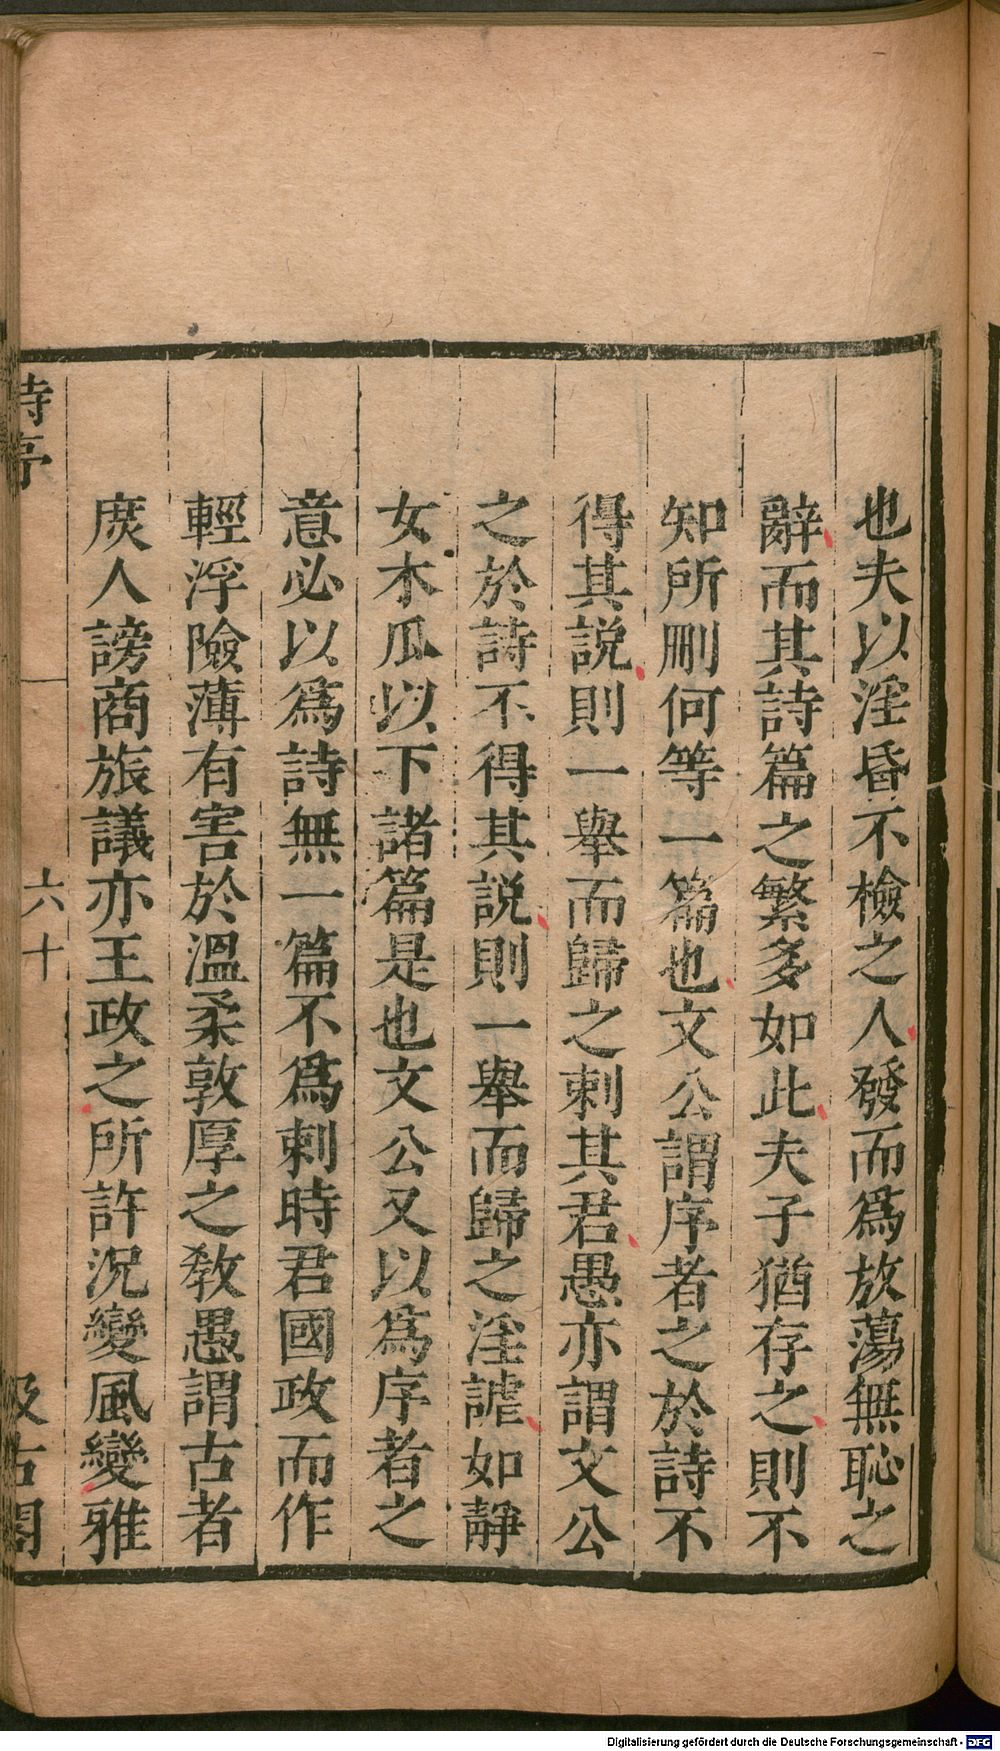 也夫以淫昏不檢之人發而爲放蕩無恥之
辭而其詩篇之繁多如此夫子猶存之則不
知所刪何等一篇也文公謂序者之於詩不
得其説則一舉而歸之刺其君愚亦謂文公
之於詩不得其説則一舉而歸之淫謔如靜
女木瓜以下諸篇是也文公又以爲序者之
意必以爲詩無一篇不爲刺時君國政而作
輕浮險薄有害於溫柔敦厚之敎愚謂古者
庻人謗商旅議亦王政之所許況變風變雅
詩序
六十
汲古閣
Digitalisierung gefördert durch die Deutsche Forschungsgemeinschaft - DFG